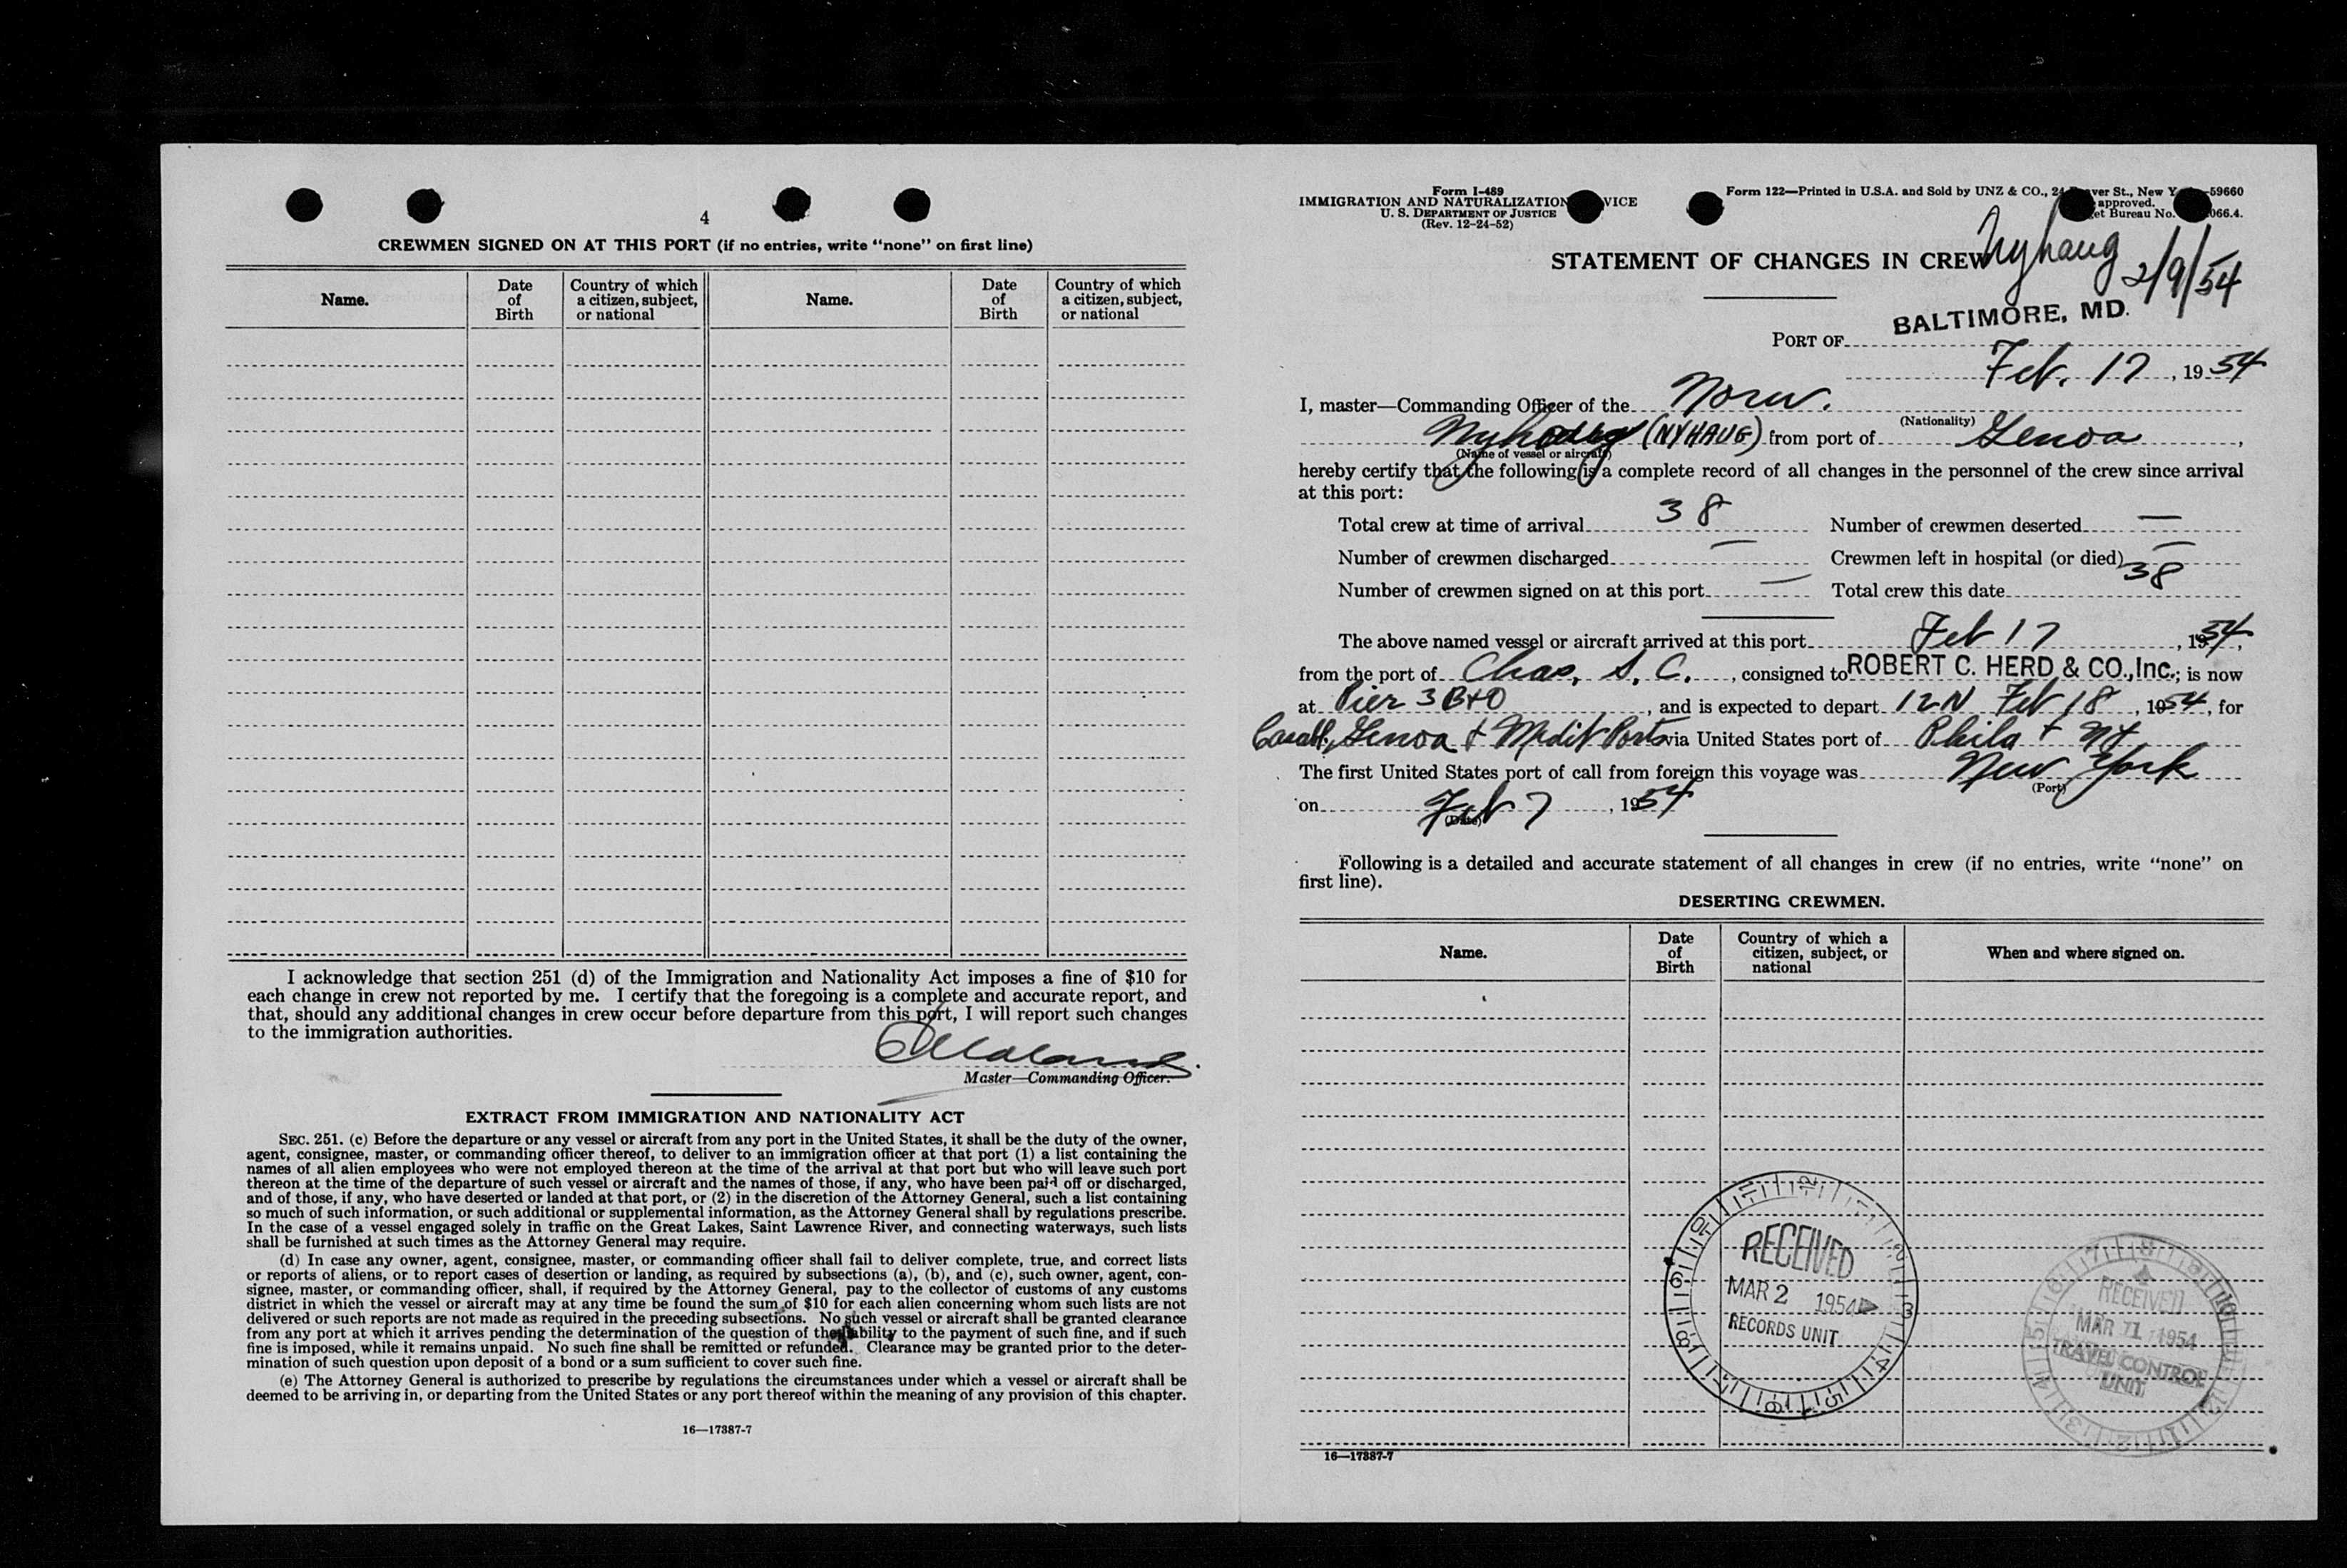 4
CREWMEN SIGNED ON AT THIS PORT (if no entries, write "none" on first line)
Name.
Date of Birth
Country of which a citizen, subject, or national
Name.
Date of Birth
Country of which a citizen, subject, or national
I acknowledge that section 251 (d) of the Immigration and Nationality Act imposes a fine of $10 for
each change in crew not reported by me. I certify that the foregoing is a complete and accurate report, and
that, should any additional changes in crew occur before departure from this port, I will report such changes
to the immigration authorities.
Master—Commanding Officer.
EXTRACT FROM IMMIGRATION AND NATIONALITY ACT
SEC. 251. (c) Before the departure or any vessel or aircraft from any port in the United States, it shall be the duty of the owner,
agent, consignee, master, or commanding officer thereof, to deliver to an immigration officer at that port (1) a list containing the
names of all alien employees who were not employed thereon at the time of the arrival at that port but who will leave such port
thereon at the time of the departure of such vessel or aircraft and the names of those, if any, who have been paid off or discharged,
and of those, if any, who have deserted or landed at that port, or (2) in the discretion of the Attorney General, such a list containing
so much of such information, or such additional or supplemental information, as the Attorney General shall by regulations prescribe.
In the case of a vessel engaged solely in traffic on the Great Lakes, Saint Lawrence River, and connecting waterways, such lists
shall be furnished at such times as the Attorney General may require.
(d) In case any owner, agent, consignee, master, or commanding officer shall fail to deliver complete, true, and correct lists
or reports of aliens, or to report cases of desertion or landing, as required by subsections (a), (b), and (c), such owner, agent, con-
signee, master, or commanding officer, shall, if required by the Attorney General, pay to the collector of customs of any customs
district in which the vessel or aircraft may at any time be found the sum of $10 for each alien concerning whom such lists are not
delivered or such reports are not made as required in the preceding subsections. No such vessel or aircraft shall be granted clearance
from any port at which it arrives pending the determination of the question of the liability to the payment of such fine, and if such
fine is imposed, while it remains unpaid. No such fine shall be remitted or refunded. Clearance may be granted prior to the deter-
mination of such question upon deposit of a bond or a sum sufficient to cover such fine.
(e) The Attorney General is authorized to prescribe by regulations the circumstances under which a vessel or aircraft shall be
deemed to be arriving in, or departing from the United States or any port thereof within the meaning of any provision of this chapter.
16—17387-7
Form I-489
IMMIGRATION AND NATURALIZATION VICE
U. S. DEPARTMENT OF JUSTICE
(Rev. 12-24-52)
Form 122—Printed in U.S.A. and Sold by UNZ & CO., 24 ver St., New Y 59660
approved.
et Bureau No. 066.4.
STATEMENT OF CHANGES IN CREW
Nyhaug 2/9/54
PORT OF BALTIMORE, MD.
Feb. 17, 1954
I, master—Commanding Officer of the Norw.
(Nationality)
Nyhaug (NYHAUG) from port of Genoa,
(Name of vessel or aircraft)
hereby certify that the following is a complete record of all changes in the personnel of the crew since arrival
at this port:
Total crew at time of arrival 38 Number of crewmen deserted —
Number of crewmen discharged — Crewmen left in hospital (or died) —
Number of crewmen signed on at this port — Total crew this date 38
The above named vessel or aircraft arrived at this port Feb 17, 1954,
from the port of Chas, S. C., consigned to ROBERT C. HERD & CO., Inc.; is now
at Pier 3 B+O, and is expected to depart 12N Feb 18, 1954, for
Casab, Genoa + Medit Ports via United States port of Phila + NY
The first United States port of call from foreign this voyage was New York
(Port)
on Feb 7, 1954
(Date)
Following is a detailed and accurate statement of all changes in crew (if no entries, write "none" on
first line).
DESERTING CREWMEN.
Name.
Date of Birth
Country of which a citizen, subject, or national
When and where signed on.
RECEIVED
MAR 2 1954
RECORDS UNIT
RECEIVED
MAR 1 1954
TRAVEL CONTROL
UNIT
16—17387-7